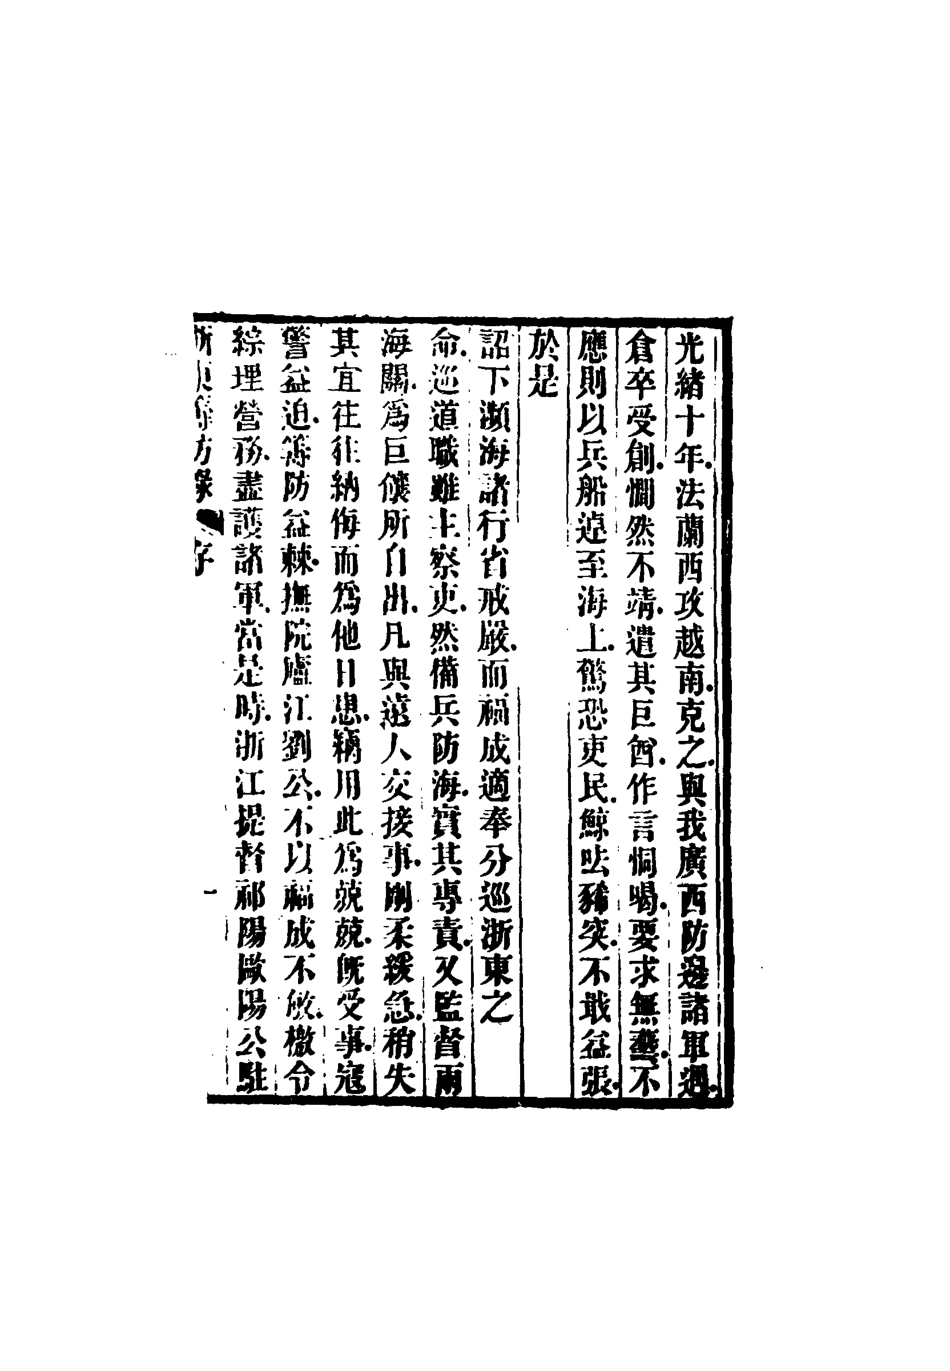 光緒十年法蘭西攻越南克之與我廣西防邊諸軍遇
倉卒受創憪然不靖遣其巨酋作言恫喝要求無藝不
應則以兵船遶至海上驚恐吏民鯨呿豨突不戢益張
於是
詔下瀕海諸行省戒嚴而福成適奉分巡浙東之
命巡道職雖主察吏然備兵防海實其專責又監督兩
海關爲巨饟所自出凡與遠人交接事剛柔緩急稍失
其宜往往納侮而爲他日患竊用此爲兢兢旣受事寇
警益迫籌防益棘撫院廬江劉公不以福成不敏檄令
綜理營務盡護諸軍當是時浙江提督祁陽歐陽公駐
浙東籌防錄 序
一